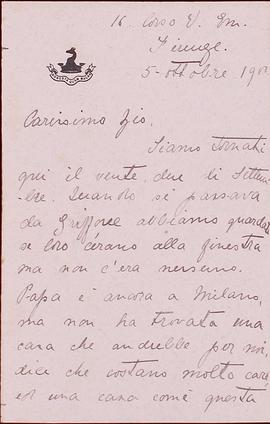 16. Corso V. Em.
Firenze.
5 - ottobre 190
Carissimo Zio.
Siamo tornati
qui il vente due di Settem
bre. Quando si passava
da abbiamo guardat
se loro c'erano alla finestra
ma non c'era nessuno.
Papa è ancora a Milano,
ma non ha trovata una
casa che andrebbe per noi,
dice che costano molto care
ed una casa come questa